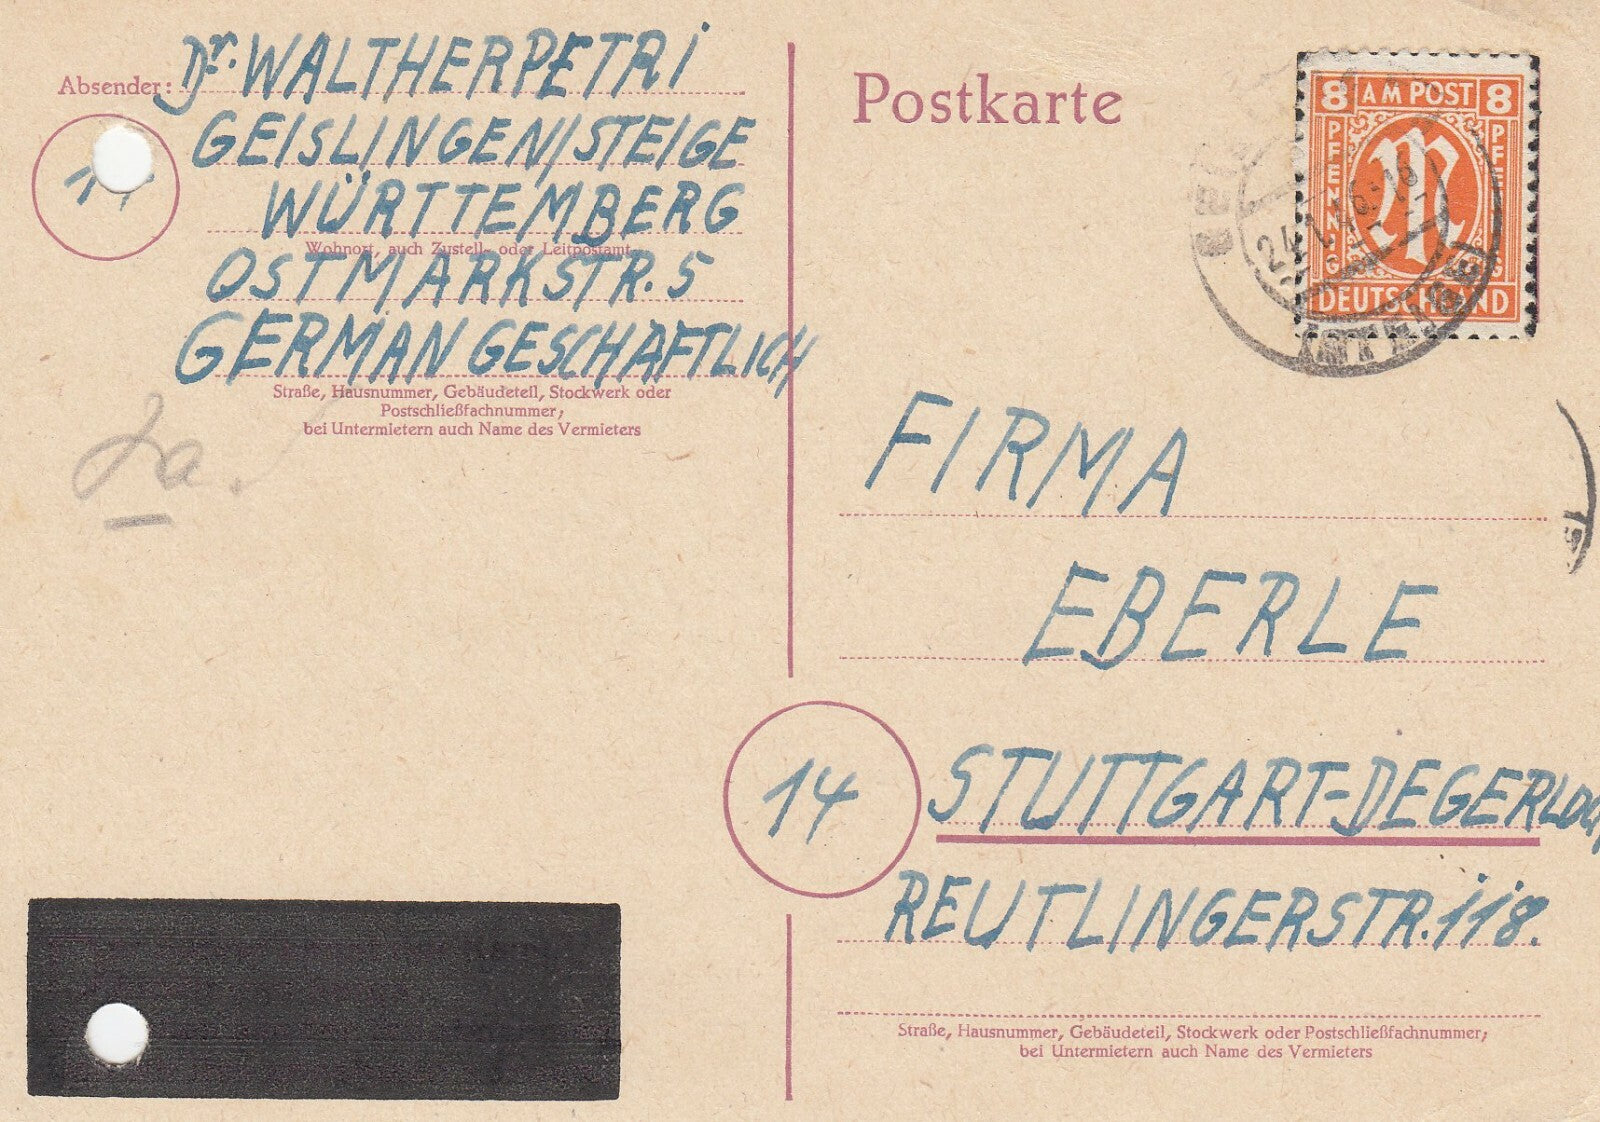 Absender: Dr. WALTHER PETRI
14
GEISLINGEN/STEIGE
WÜRTTEMBERG
Wohnort, auch Zustell- oder Leitpostamt
OSTMARKSTR. 5
GERMAN GESCHÄFTLICH
Straße, Hausnummer, Gebäudeteil, Stockwerk oder
Postschließfachnummer;
bei Untermietern auch Name des Vermieters
Postkarte
8 AM POST 8
PFENNIG
PFENNIG
M
DEUTSCHLAND
FIRMA
EBERLE
14
STUTTGART-DEGERLOCH
REUTLINGERSTR. 118.
Straße, Hausnummer, Gebäudeteil, Stockwerk oder Postschließfachnummer;
bei Untermietern auch Name des Vermieters